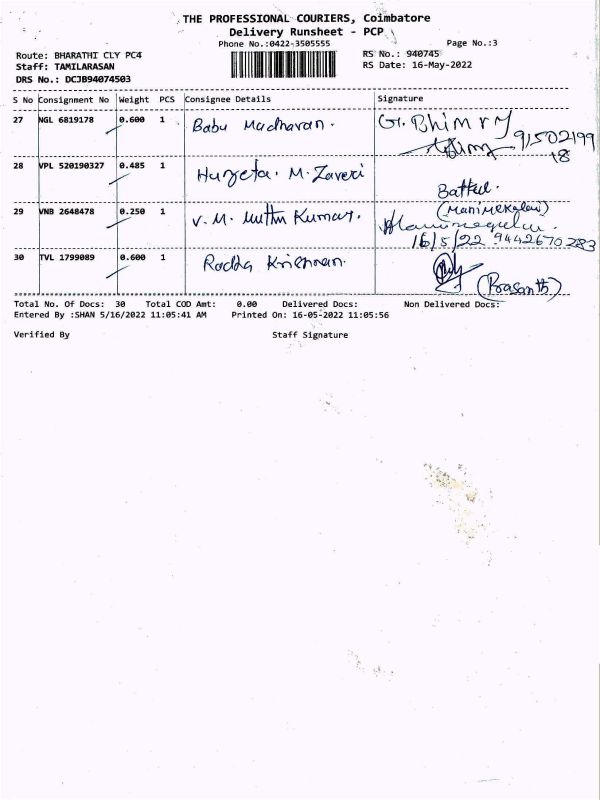 THE PROFESSIONAL COURIERS, Coimbatore
Delivery Runsheet - PCP
Phone No.:0422-3505555
Page No.:3
Route: BHARATHI CLY PC4
RS No.: 940745
Staff: TAMILARASAN
RS Date: 16-May-2022
DRS No.: DCJB94074503
S No Consignment No Weight PCS Consignee Details Signature
27 NGL 6819178 0.600 1 Babu Madhavan.
91502199
18
28 VPL 520190327 0.485 1 Huzefa. M. Zaveri
29 VNB 2648478 0.250 1 V. M. Muthu Kumar. (Manimekalai)
16/5/22 9442670283
30 TVL 1799089 0.600 1 Radha Krishnan.
(Prasanth)
Total No. Of Docs: 30 Total COD Amt: 0.00 Delivered Docs: Non Delivered Docs:
Entered By :SHAN 5/16/2022 11:05:41 AM Printed On: 16-05-2022 11:05:56
Verified By Staff Signature